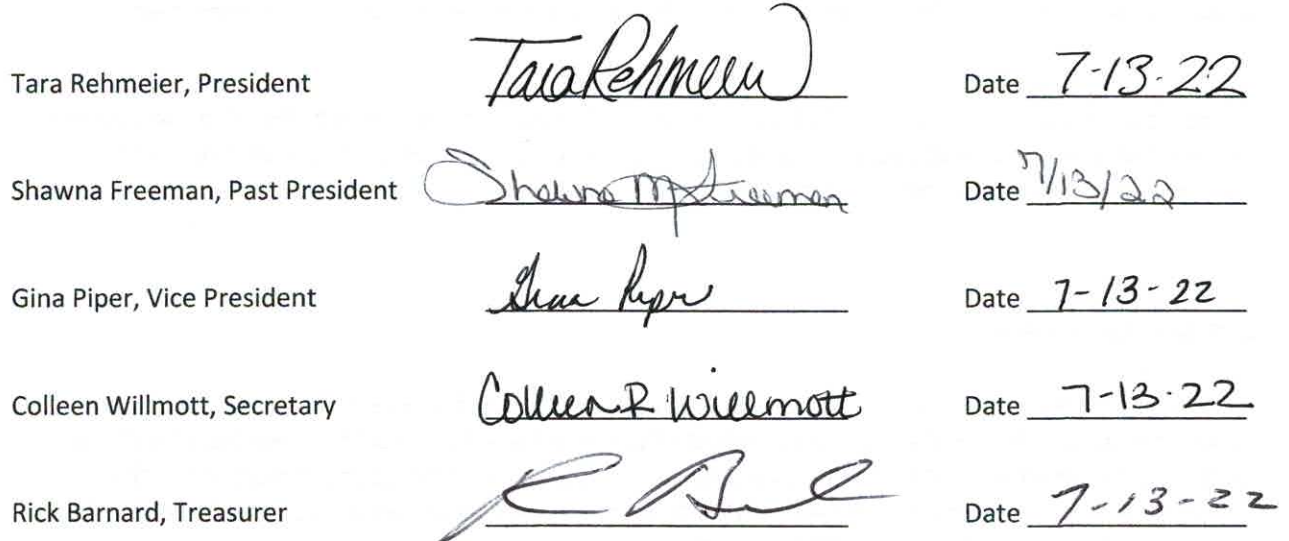 Tara Rehmeier, President Tara Rehmeier Date 7-13-22
Shawna Freeman, Past President Shawna M Freeman Date 7/13/22
Gina Piper, Vice President Gina Piper Date 7-13-22
Colleen Willmott, Secretary Colleen R Willmott Date 7-13-22
Rick Barnard, Treasurer Date 7-13-22